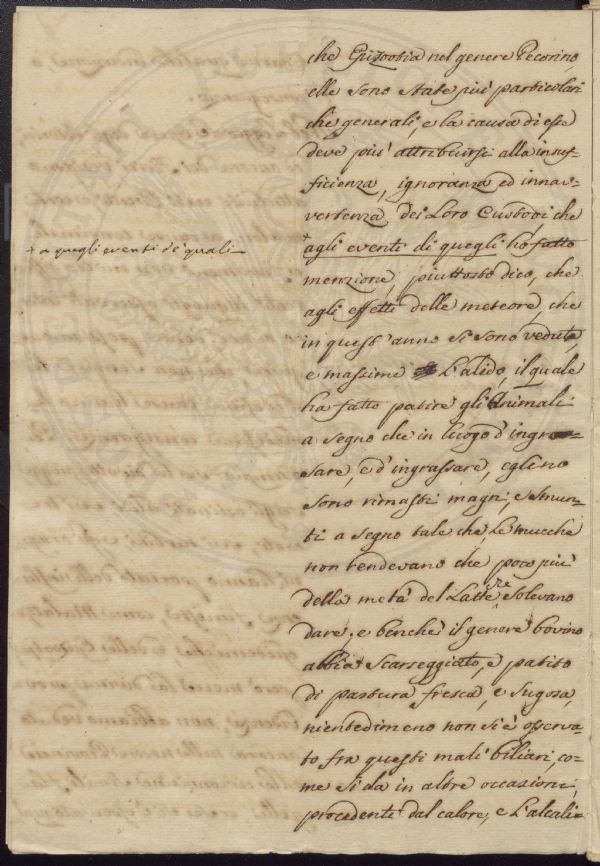 che Epizootia nel genere Pecorino
elle sono state piú particolari
che generali, e la causa di esse
deve piú attribuirsi alla insuf=
ficienza, ignoranza ed innav=
vertenza dei Loro Custodi che
+ a quegli eventi de' quali
+ agli eventi di quegli ho fatto
menzione, piuttosto dico, che
agli effetti delle meteore, che
in quest' anno si sono vedute,
e massime L'alido, il quale
ha fatto patire gli Animali
a segno che in luogo d'ingros=
sare, e d'ingrassare, eglino
sono rimasti magri, e smun=
ti a segno tale che, Le mucche
non rendevano che poco piú
della metá del Latte solevano
dare, e benché il genere bovino
abbia scarseggiato, e patito
di pastura fresca, e sugosa,
nientedimeno non si é osserva=
to fra questi mali biliari, co=
me si dá in altre occasioni,
procedenti dal calore, e L'alcali=